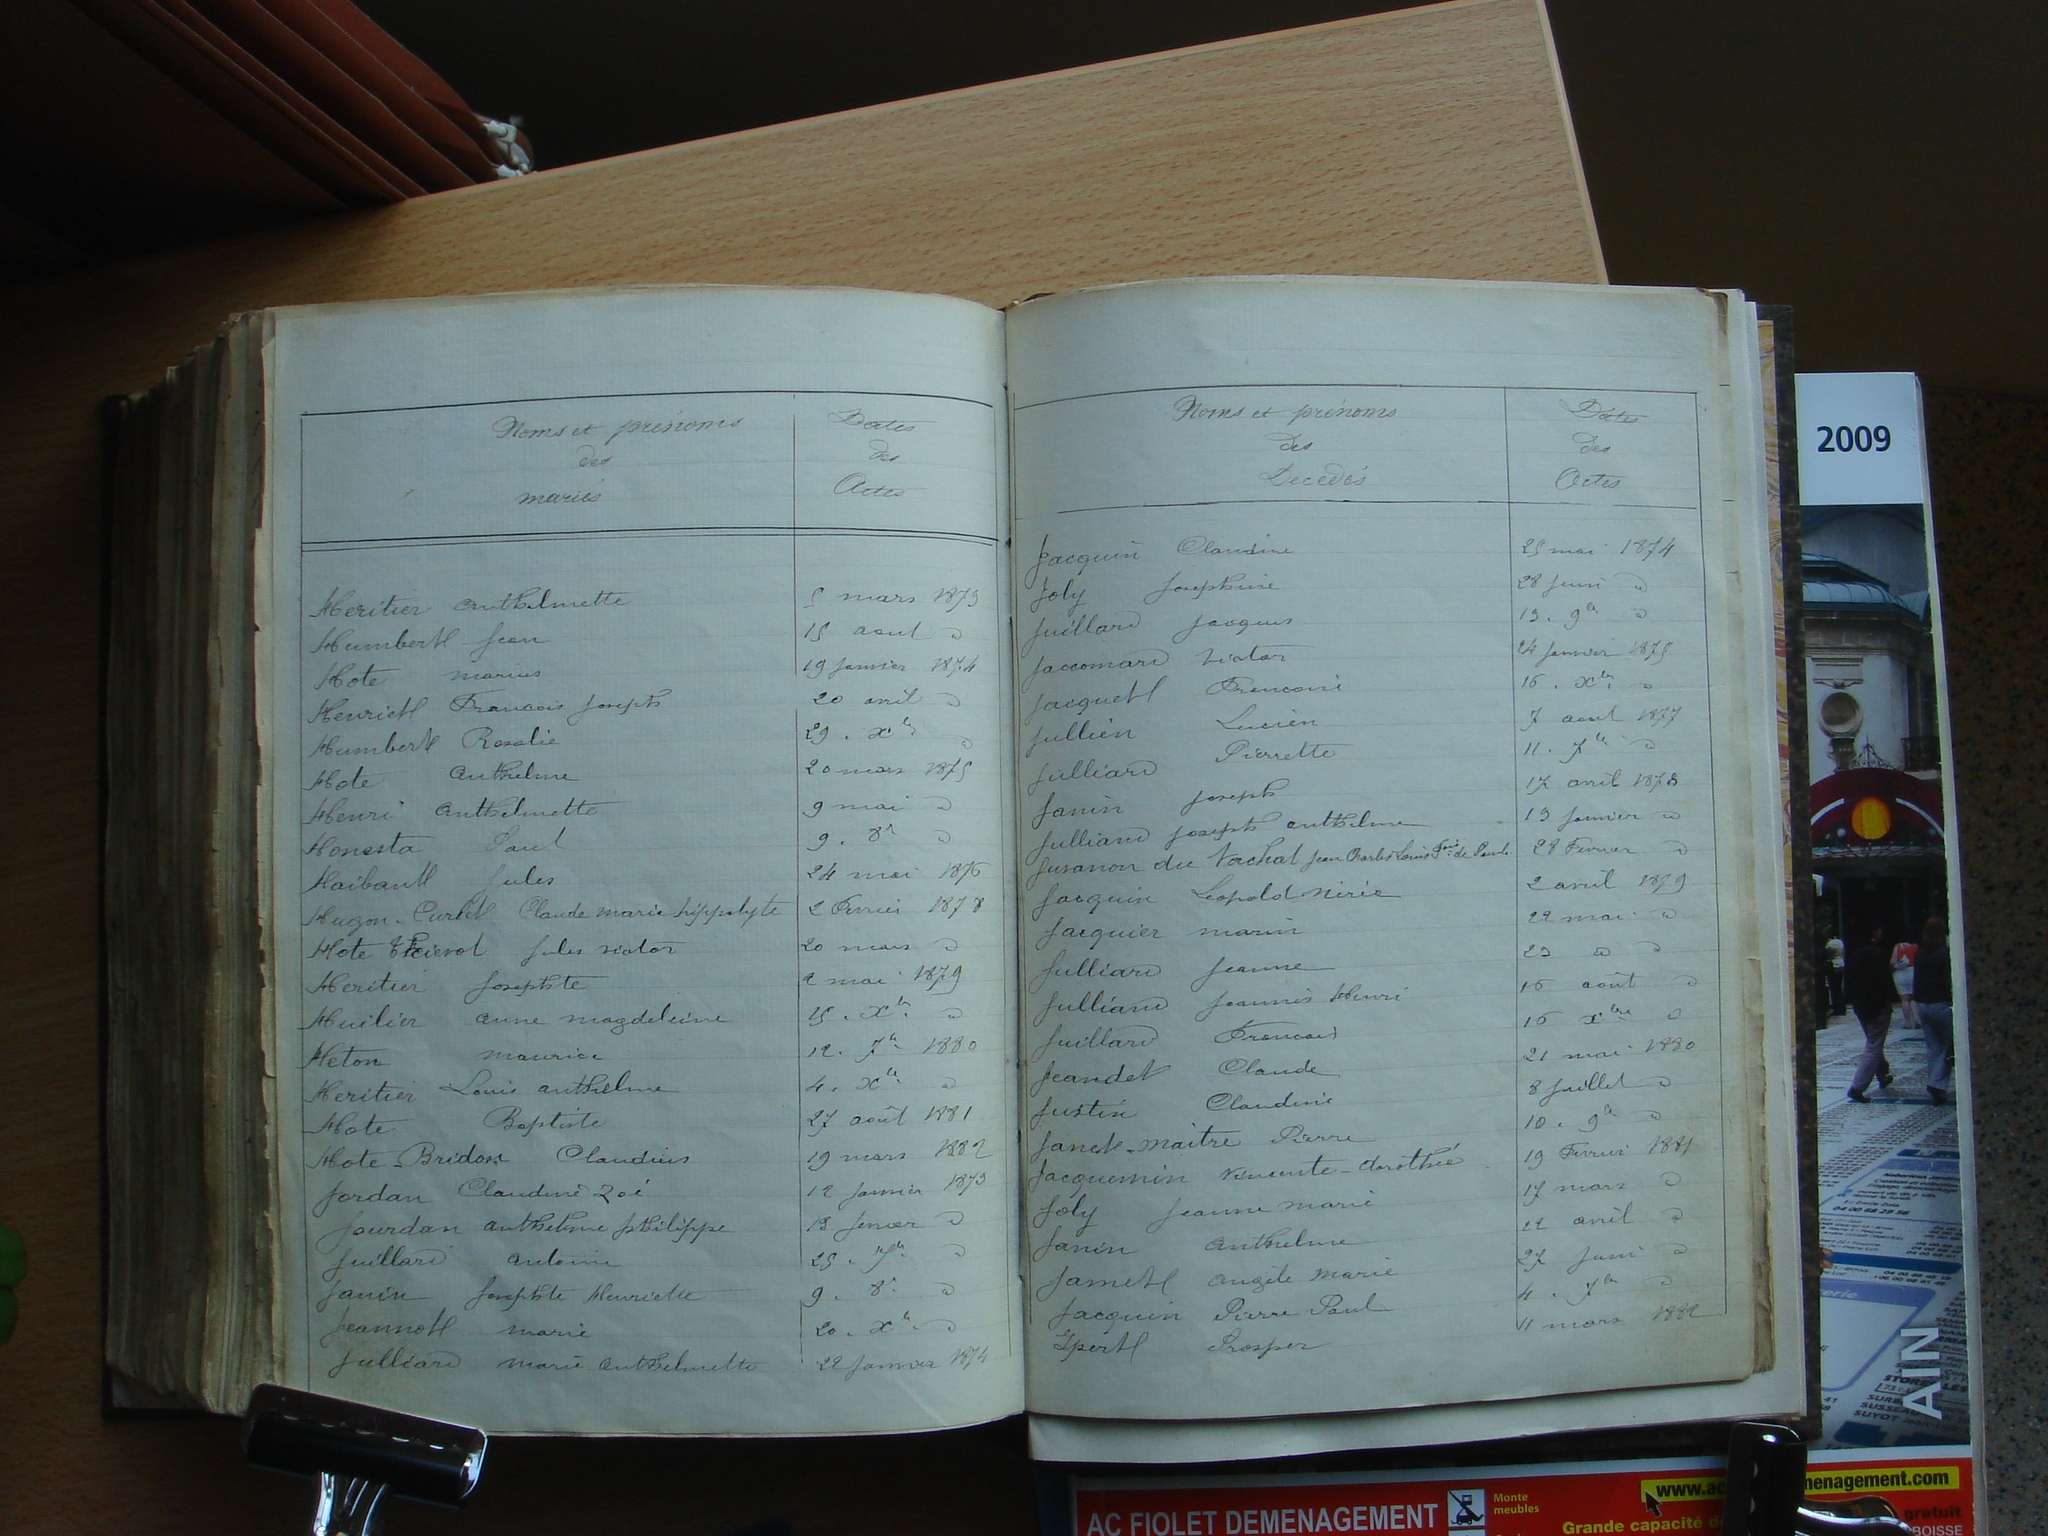 Noms et prénoms
des
mariés
Dates
des
Actes
Heritier anthelmette 5 mars 1873
Humbert Jean 15 aout d
Hote marius 19 janvier 1874
Henriett François Joseph 20 avril d
Humbert Rosalie 29. xbr d
Hote anthelme 20 mars 1875
Henri anthelmette 9 mai d
Honesta Paul 9. 8r d
Haibault Jules 24 mai 1876
Hugon-Curlet Claude marie hyppolyte 2 Fevrier 1878
Hote Jules victor 20 mars d
Heritier Josephte 2 mai 1879
Huilier anne magdeleine 15. xbr d
Heton maurice 12. 7br 1880
Heritier Louis anthelme 4. xbr d
Hote Baptiste 27 août 1881
Hote-Bridon Claudius 19 mars 1882
Jordan Claudine Zoé 12 janvier 1873
Jourdan anthelme philippe 18 fevrier d
Juillard antoine 25. 7br d
Janin Josephte Henriette 9. 8r d
Jeannott marie 20. xbr d
Julliard marie anthelmette 22 janvier 1874
Noms et prénoms
des
Decedés
Dates
des
Actes
Jacquin Claudine 25 mai 1874
Joly Josephine 28 juin d
Juillard Jacques 13. 9br d
Jaccomard Victor 24 janvier 1875
Jacquett Francois 16. xbr d
Jullien Lucien 7 aout 1877
Julliard Pierrette 11. 7br d
Janin Joseph 17 avril 1878
Julliand Joseph anthelme 13 janvier d
du Vachat Jean Charles Louis Fois de Paule 28 Fevrier d
Jacquin Leopold 2 avril 1879
Jacquier marin 22 mai d
Julliard Jeanne 23 d d
Julliand Jeannis Henri 16 août d
Juillard Francois 16 xbre d
Jeandet Claude 21 mai 1880
Justin Claudine 8 juillet d
maitre Pierre 10. 9br d
Jacquemin dorothée 19 Fevrier 1881
Joly Jeanne marie 17 mars d
Janin anthelme 12 avril d
Jamett angèle marie 27 juin d
Jacquin Pierre Paul 4. 7br d
Ypertt Prosper 11 mars 1882
2009
AIN
AC FIOLET DEMENAGEMENT
Monte
meubles
www.ac
menagement.com
Grande capacité
gratuit